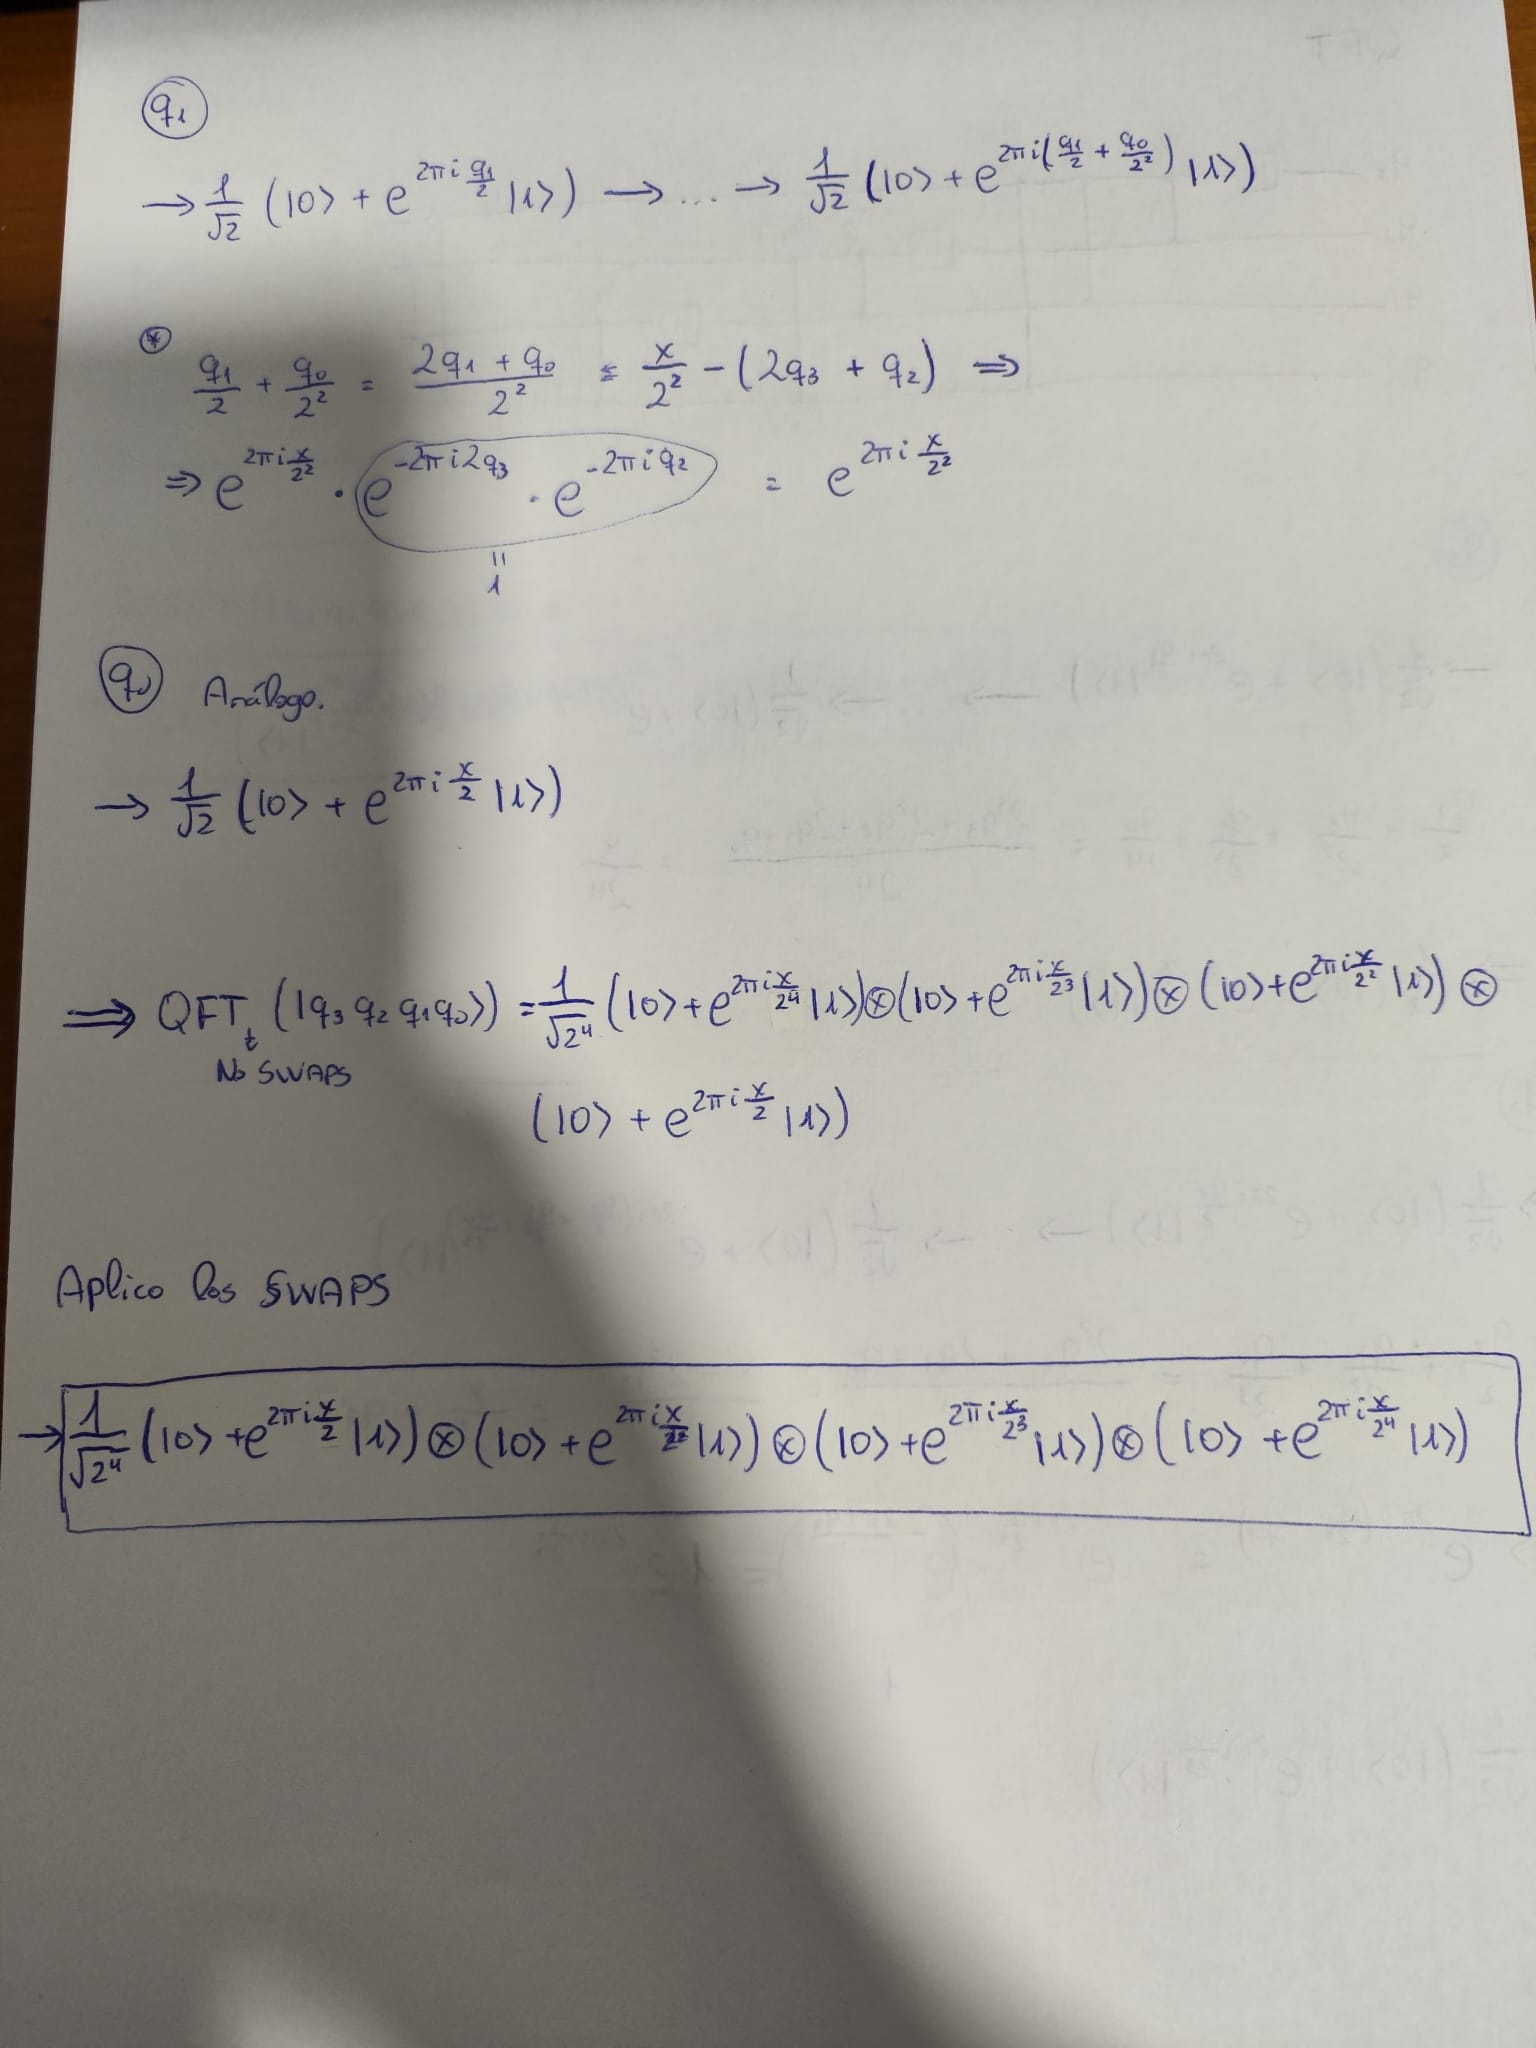 q₁
→ 1/√2 (|0> + e^{2πi q₁/2} |1>) → ... → 1/√2 (|0> + e^{2πi(q₁/2 + q₀/2²)} |1>)
* q₁/2 + q₀/2² = (2q₁ + q₀)/2² = x/2² - (2q₃ + q₂) ⇒
⇒ e^{2πi x/2²} · e^{-2πi2q₃} · e^{-2πiq₂} = e^{2πi x/2²}
"
1
q₀ Análogo.
→ 1/√2 (|0> + e^{2πi x/2} |1>)
⇒ QFT (|q₃ q₂ q₁ q₀>) = 1/√2⁴ (|0> + e^{2πi x/2⁴} |1>) ⊗ (|0> + e^{2πi x/2³} |1>) ⊗ (|0> + e^{2πi x/2²} |1>) ⊗
No SWAPS
(|0> + e^{2πi x/2} |1>)
Aplico los SWAPS
→ 1/√2⁴ (|0> + e^{2πi x/2} |1>) ⊗ (|0> + e^{2πi x/2²} |1>) ⊗ (|0> + e^{2πi x/2³} |1>) ⊗ (|0> + e^{2πi x/2⁴} |1>)